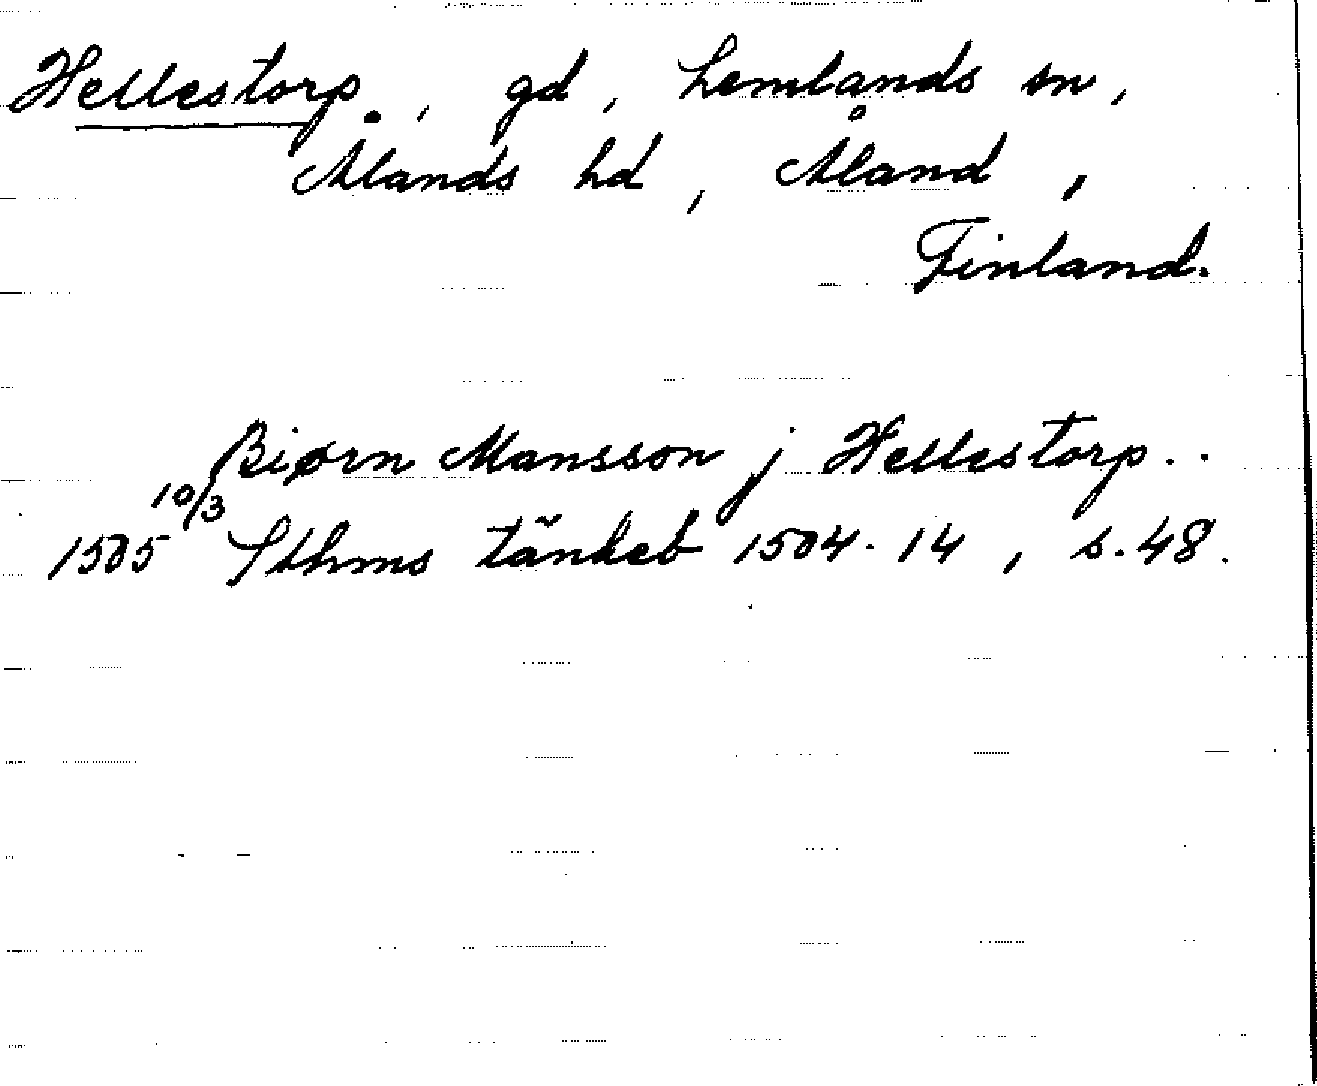 Hellestorp, gd, Lemlands sn,
Ålands hd, Åland,
Finland.
Biørn Mansson j Hellestorp..
1505 10/3 Sthms tänkeb 1504-14, s.48.